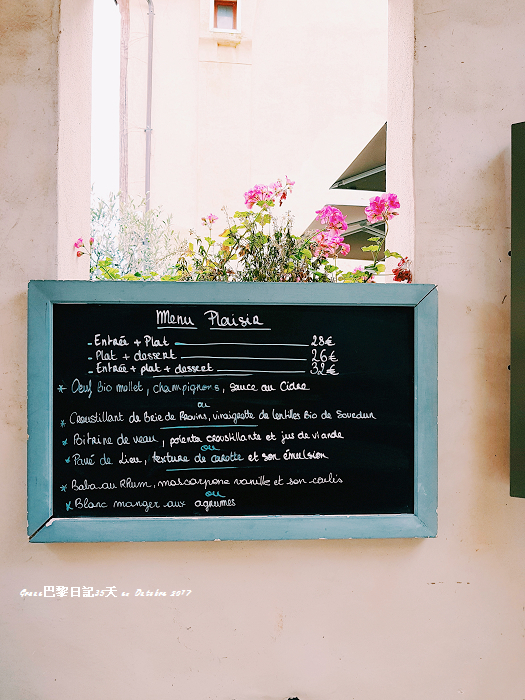 Menu Plaisir
- Entrée + Plat 28€
- Plat + dessert 26€
- Entrée + plat + dessert 32€
* Oeuf Bio mollet, champignons, sauce au Cidre
ou
* Croustillant de Brie de Provins, vinaigrette de lentilles Bio de
* Poitrine de veau, polenta croustillante et jus de viande
ou
* Pavé de Lieu, texture de carotte et son émulsion
* Baba au Rhum, mascarpone vanille et son coulis
ou
* Blanc manger aux agrumes
巴黎日記35天 en Octobre 2017